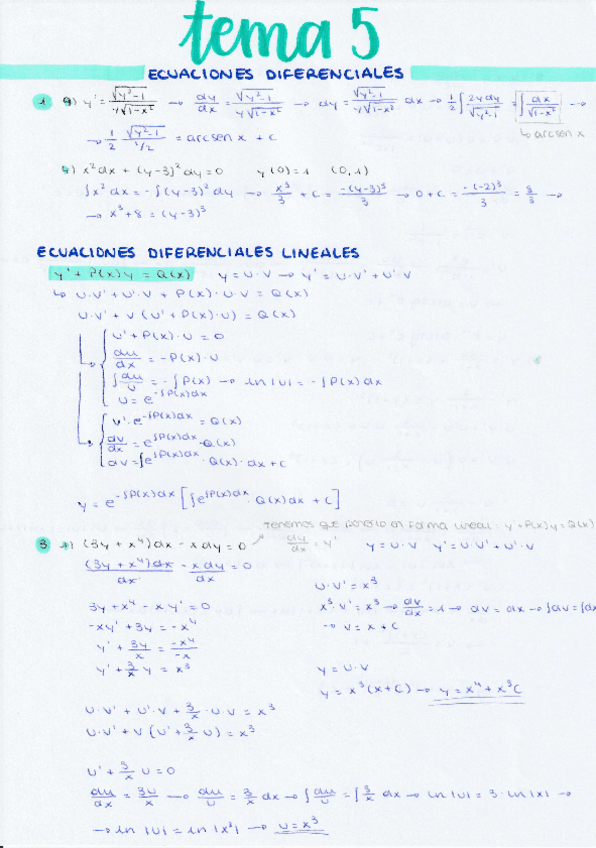 tema 5
ECUACIONES DIFERENCIALES
1 g) y' = √(y²-1) / y√(1-x²) → dy/dx = √(y²-1) / y√(1-x²) → dy = √(y²-1) / y√(1-x²) dx → 1/2 ∫ 2y dy / √(y²-1) = ∫ dx / √(1-x²) →
↳ arcsen x
→ 1/2 √(y²-1) / 1/2 = arcsen x + c
x² dx + (y-3)² dy = 0   y(0) = 1   (0,1)
∫x² dx = -∫(y-3)² dy → x³/3 + c = -(y-3)³/3 → 0 + c = -(-2)³/3 = 8/3 →
→ x³ + 8 = (y-3)³
ECUACIONES DIFERENCIALES LINEALES
y' + P(x)y = Q(x)   y = u·v → y' = u·v' + u'·v
↳ u·v' + u'·v + P(x)·u·v = Q(x)
u·v' + v(u' + P(x)·u) = Q(x)
u' + P(x)·u = 0
du/dx = -P(x)·u
∫ du/u = -∫P(x) → ln|u| = -∫P(x)dx
u = e^(-∫P(x)dx)
v'·e^(-∫P(x)dx) = Q(x)
dv/dx = e^(∫P(x)dx)·Q(x)
dv = ∫e^(∫P(x)dx)·Q(x)·dx + c
y = e^(-∫P(x)dx) [∫e^(∫P(x)dx)·Q(x)dx + c]
Tenemos que ponerlo en forma lineal: y + P(x)y = Q(x)
3 (3y + x⁴)dx - x dy = 0   dy/dx = y'   y = u·v   y' = u·v' + u'·v
(3y + x⁴)dx/dx - x dy/dx = 0
3y + x⁴ - xy' = 0
-xy' + 3y = -x⁴
y' + 3y/x = -x⁴/-x
y' + 3/x y = x³
u·v' + u'·v + 3/x·u·v = x³
u·v' + v(u' + 3/x u) = x³
u' + 3/x u = 0
du/dx = 3u/x → du/u = 3/x dx → ∫ du/u = ∫ 3/x dx → ln|u| = 3·ln|x| →
→ ln|u| = ln|x³| → u = x³
u·v' = x³
x³·v' = x³ → dv/dx = 1 → dv = dx → ∫dv = ∫dx
→ v = x + c
y = u·v
y = x³(x + c) → y = x⁴ + x³c